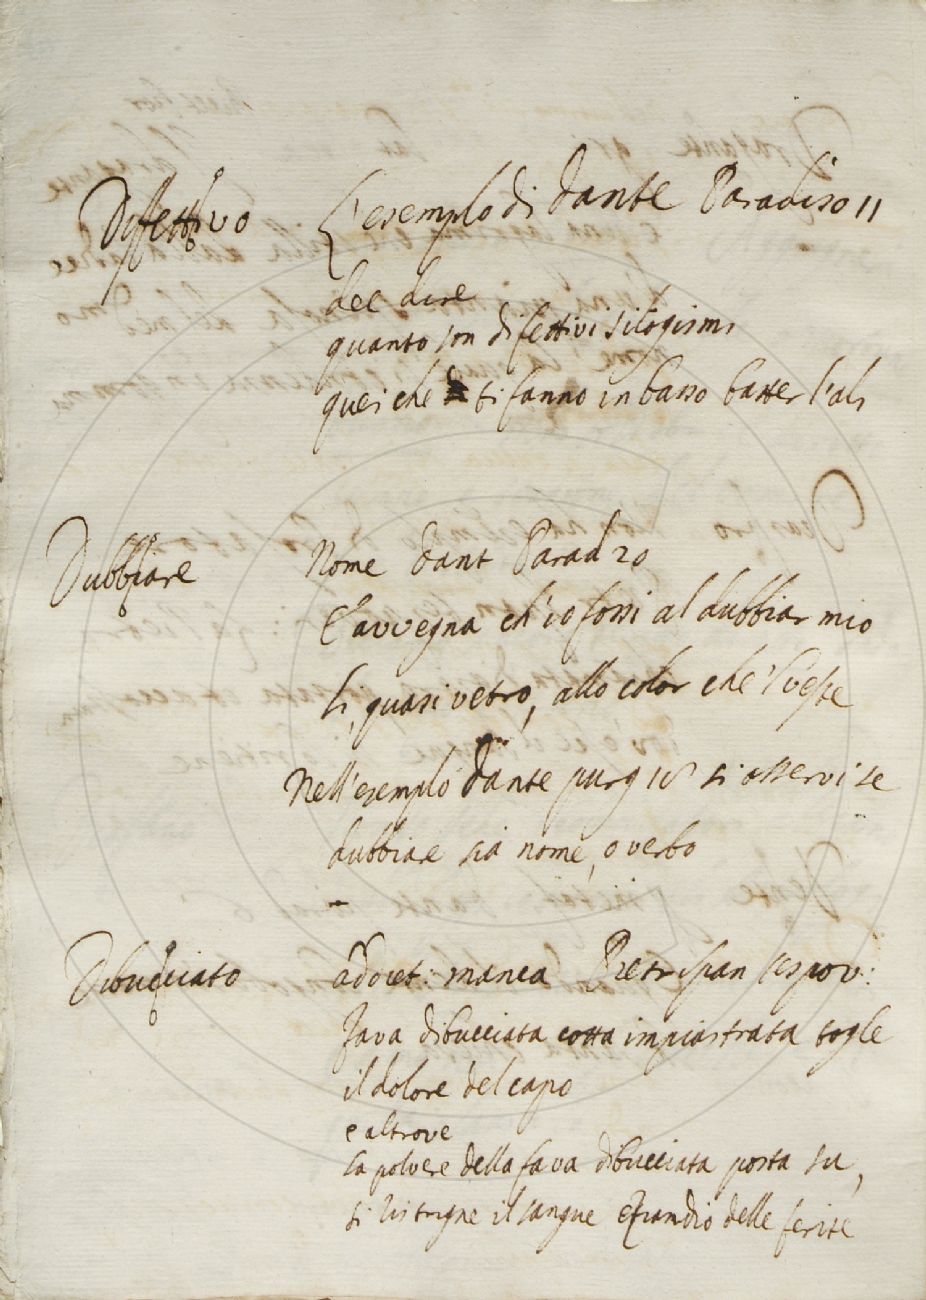 Difettivo L'esemplo di dante Paradiso 11
dee dire
quanto son difettivi silogismi
quei che ti fanno in basso batter l'ali
Dubbiare Nome dant Parad 20
E avvegna ch'io fossi al dubbiar mio
Li, quasi vetro, allo color che'l veste
Nell'esemplo dante purg si osservi se
dubbiare sia nome, o verbo
Dibucciato adiet: manca Pietr span tes pov:
fava dibucciata cotta impiastrata togle
il dolore del capo
e altrove
la polvere della fava dibucciata posta su,
si ristrigne il sangue eziandio delle ferite